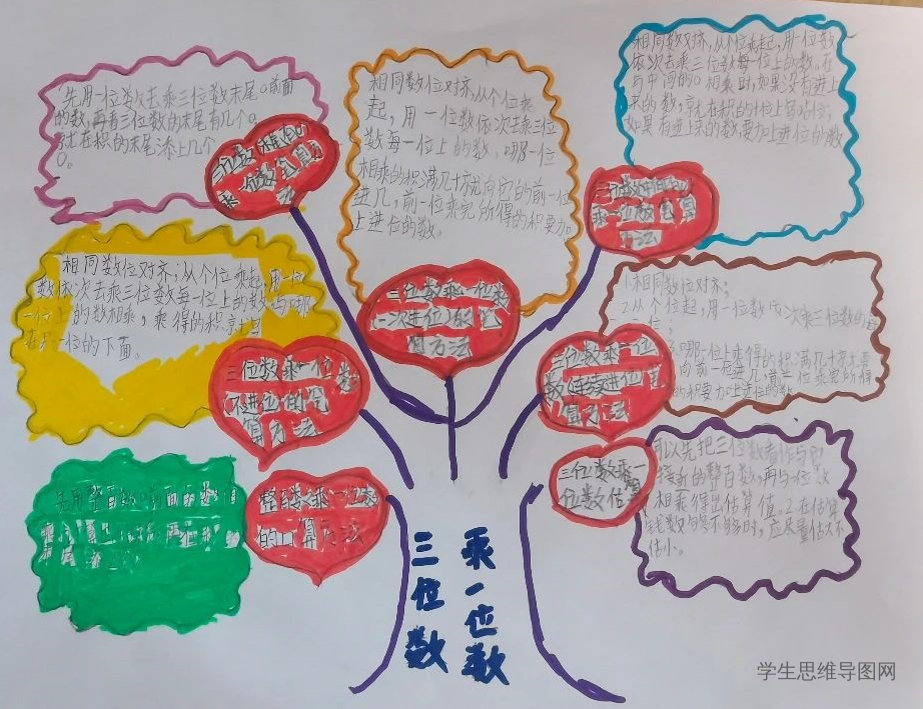 先用一位数去乘三位数末尾0前面
的数,再看三位数的末尾有几个0,
就在积的末尾添上几个
0。
三位数末尾有0
乘一位数笔算方
法
相同数位对齐,从个位乘
起,用一位数依次去乘三位
数每一位上的数。哪一位
相乘的积满几十就向它的前一位
进几,前一位乘完所得的积要加
上进位的数。
三位数乘一位数
(一次进位)的笔
算方法
相同数对齐,从个位乘起,用一位数
依次去乘三位数每一位上的数。在
与中间的0相乘时,如果没有进上
来的数,就在积的个位上写0占位;
如果有进上来的数,要加上进位的数
三位数中间有0
乘一位数笔算
方法
相同数位对齐,从个位乘起,用一位
数依次去乘三位数每一位上的数与哪
一位上的数相乘,乘得的积就写
在那一位的下面。
三位数乘一位数
(不进位)的笔
算方法
1.相同数位对齐;
2.从个位起,用一位数依次乘三位数的每
一位;
哪一位上乘得的积满几十就
向前一位进几,前一位乘完所得
的积要加上进位的数。
三位数乘一位
数(连续进位)笔
算方法
先用整百数0前面的数
整百数乘一位数
的口算方法
可以先把三位数看作与它
接近的整百数,再与一位
相乘得出估算值。2.在估算
钱数够不够时,应尽量估大不
估小。
三位数乘一
位数估算
三位数
乘一位数
学生思维导图网